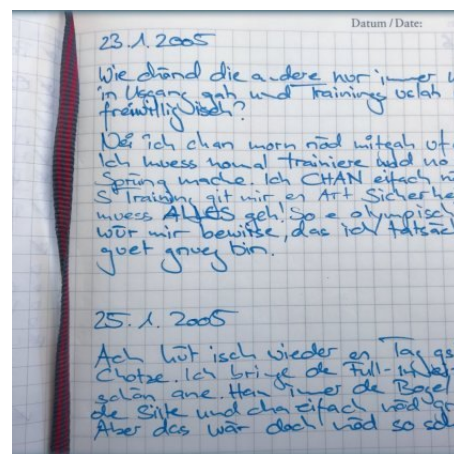 Datum / Date:
23.1.2005
Wie chönd die andere nur immer
in Usgang gah und Trainings uslah
freiwillig isch?
Nei ich chan morn nöd mitgah uf
Ich muess nomal trainiere und no
Sprüng mache. Ich CHAN eifach
S Training git mir en Art Sicherhe
muess ALLES geh! So e olympisch
wür mir bewiise, das ich tatsäc
guet gnueg bin.
25.1.2005
Ach hüt isch wieder en Tag gs
Chotze. Ich bringe de Full-in
schön ane. Han immer de Boge
de Siite und cha eifach nöd gr
Aber das wär doch nöd so sch